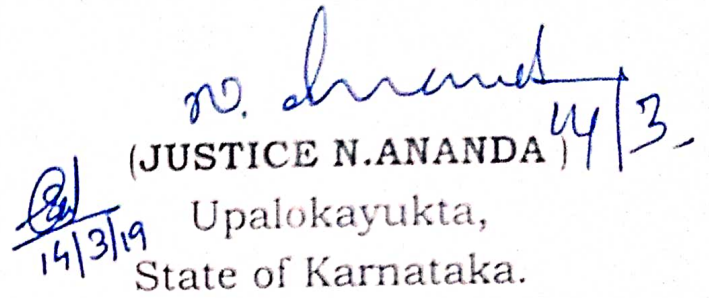 N. Anand
(JUSTICE N.ANANDA) 14/3.
Upalokayukta,
14/3/19
State of Karnataka.